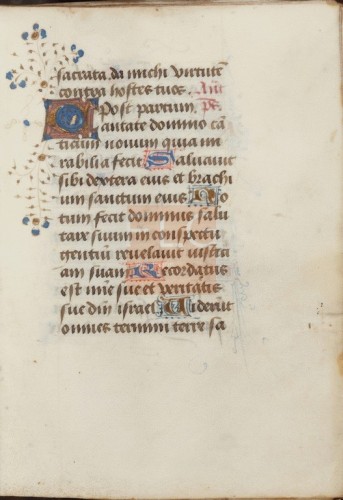 sacrata. da michi virtutē
contra hostes tuos. Añt
Post partum. Ps
Cantate domino cā
ticum novum quia mi
rabilia fecit Salvavit
sibi dextera eius et brachi
um sanctum eius No
tum fecit dominus salu
tare suum in conspectu
gentium revelavit iusti
am suam Recordatus
est mīe sue et veritatis
sue dm̄ israel Viderūt
omnes termini terre sa